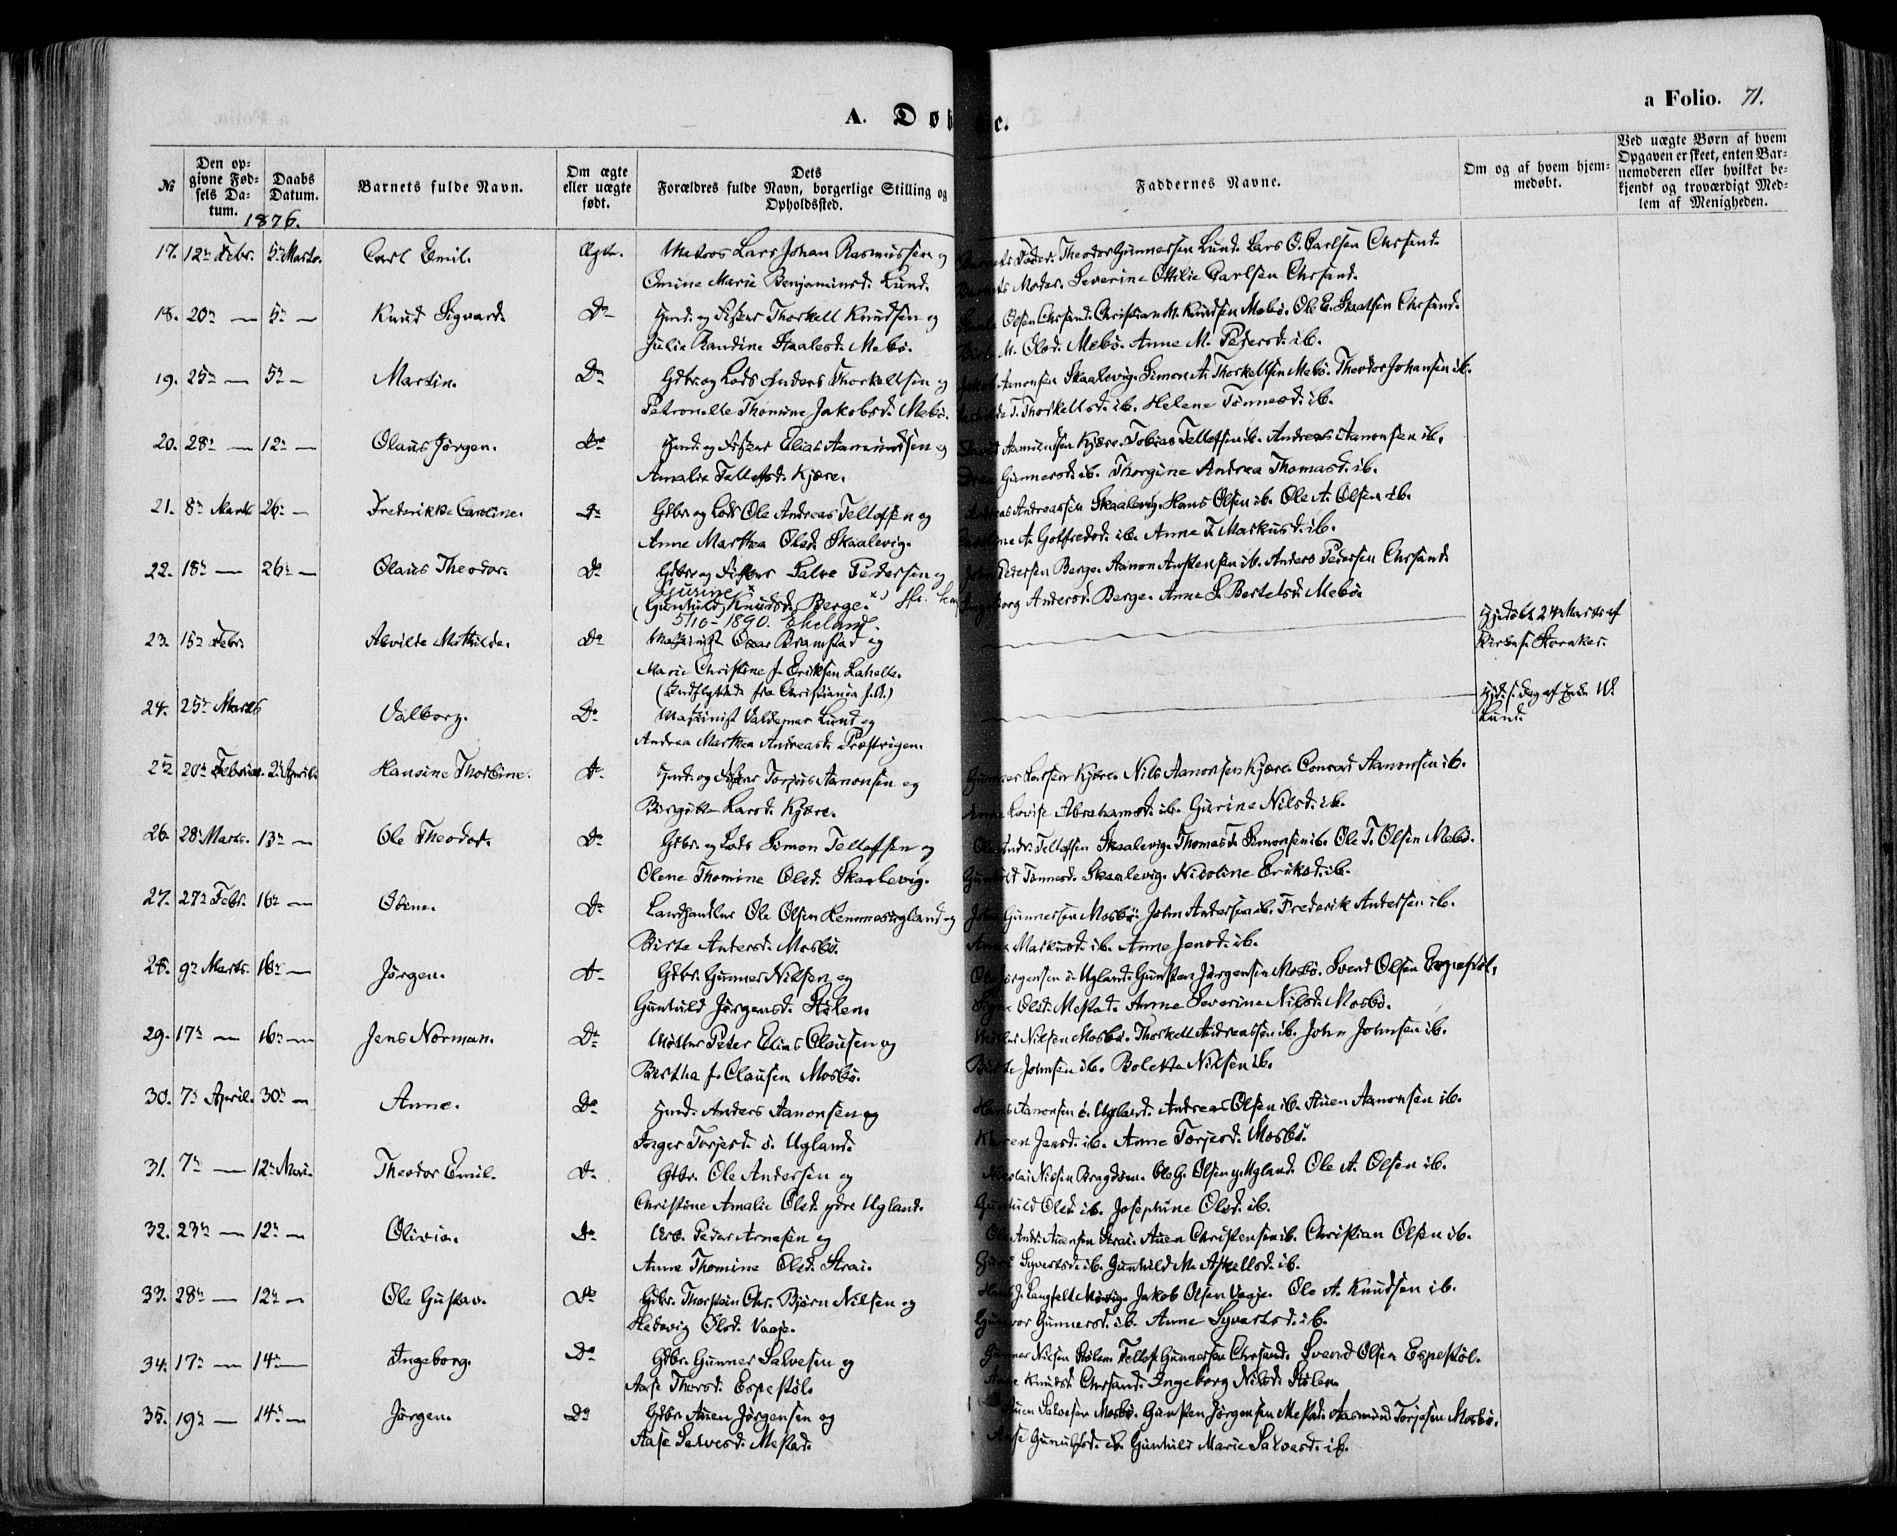 a Folio. 71.
A. Døb e.
№
Den op-
givne Fød-
sels Da-
tum.
Daabs
Datum.
1876.
Barnets fulde Navn.
Om ægte
eller uægte
født.
Dets
Forældres fulde Navn, borgerlige Stilling og
Opholdssted.
Faddernes Navne.
Om og af hvem hjem-
medøbt.
Ved uægte Børn af hvem
Opgaven er skeet, enten Bar-
nemoderen eller hvilket be-
kjendt og troværdigt Med-
lem af Menigheden.
17. 12te Febr. 5te Marts. Carl Emil. Ægte. Matros Lars Johan Rasmussen og Fader. Theodor Gunnersen Lund. Lars O. Carlsen Chrsand.
Omine Marie Benjaminsd. Lund. Moder. Severine Ottilie Carlsen Chrsand.
18. 20de — 5te — Knud Sigvard. Do Husmd. og Fisker Thorkell Knudsen og Olsen Chrsand. Christian M. Knudsen Mebø. Ole E. Skaalsen Chrsand.
Julie Randine Staalesd. Mebø. M. Olsd. Mebø. Anne M. Pedersd. ib.
19. 25de — 5te — Martin. Do Gdbr. og Lods Anders Thorkellsen og Aanonsen Skaalevig. Simon A. Thorkellsen Mebø. Theodor Johansen ib.
Petronelle Thomine Jakobsd. Mebø. T. Thorkellsd. ib. Helene Tønnesd. ib.
20. 28de — 12te — Olaus Jørgen. Do Husmd. og Fisker Elias Aamundsen og Aamundsen Kjære. Tobias Tellefsen ib. Andreas Aanonsen ib.
Amalie Tellefsd. Kjære. Gunnersd. ib. Thorgine Andrea Thomasd. ib.
21. 8de Marts 26de — Frederikke Caroline. Do Gdbr. og Lods Ole Andreas Tellefsen og Andreassen Skaalevig. Hans Olsen ib. Ole A. Olsen ib.
Anne Marthea Olsd. Skaalevig. A. Gotfredsd. ib. Anne T. Markusd. ib.
22. 18de — 26de — Olaus Theodor. Do Gdbr. og Fisker Salve Pedersen og Pedersen Berge. Aanon Austensen ib. Anders Pedersen Chrsand.
Gurine x
(Gunhild) Knudsd. Berge. x) Andersd. Berge. Anne S. Bertelsd. Mebø.
5/10 - 1890. Eheland.
23. 15de Febr. Alvilde Mathilde. Do Maskinist Oscar Bramstad og — Hjdøbt 24 Marts af
Marie Christine f. Eriksen Lahelle. Kirkes. Storaker.
(Indflyttede fra Christiania f. A.)
24. 25de Marts Valborg. Do Maskinist Valdemar Lund og — Hjd. s. dag af W.
Andrea Marthea Andreasd. Præstvigen. Lund.
25. 20de Februar. 2den April. Hansine Thorbine. Do Husmd. og Fisker Torjus Aanonsen og Larsen Kjære. Nils Aanonsen Kjære. Conrad Aanonsen ib.
Birgitte Larsd. Kjære. Lovise Abrahamsd. ib. Gurine Nilsd. ib.
26. 28de Marts. 13de — Ole Theodor. Do Gdbr. og Lods Simon Tellefsen og Ole Andr. Tellefsen Skaalevig. Thomas T. Simonsen ib. Ole T. Olsen Mebø.
Olene Thomine Olsd. Skaalevig. Gunhild Tønnesd. Skaalevig. Nicoline Eriksd. ib.
27. 27de Febr. 16de — Obine. Do Landhandler Ole Olsen Rennesugland og John Gunnersen Mosbø. John Andersen ib. Frederik Andersen ib.
Birte Andersd. Mosbø. Anne Markusd. ib. Anne Jensd. ib.
28. 9de Marts. 16de — Jørgen. Do Gdbr. Gunner Nilsen og Ole Jørgensen ø. Ugland. Gunsten Jørgensen Mosbø. Svend Olsen Espestøl.
Gunhild Jørgensd. Stølen. Olsd. Mestad. Anne Severine Nilsd. Mosbø.
29. 17de — 16de — Jens Norman. Do Møller Peter Elias Clausen og Nilsen Mosbø. Thorkell Andreassen ib. John Johnsen ib.
Bertha f. Clausen Mosbø. Johnsen ib. Bolette Nilsen ib.
30. 7de April. 30de — Anne. Do Husmd. Anders Aanonsen og Hans Aanonsen ø. Ugland. Andreas Olsen ib. Auen Aanonsen ib.
Inger Torjusd. ø. Ugland. Karen Jensd. ib. Anne Torjusd. Mosbø.
31. 7de — 12te Mai. Theodor Emil. Do Gdbr. Ole Andersen og Nicolai Nilsen Kragdøen. Ole G. Olsen y. Ugland. Ole A. Olsen ib.
Christine Amalie Olsd. ydre Ugland. Gunhild Olsd. ib. Josephine Olsd. ib.
32. 23de — 12te — Olivia. Do Arb. Peder Arnesen og Ole Andr. Auensen Strai. Auen Christensen ib. Christian Olsen ib.
Anne Thomine Olsd. Strai. Guri Syvertsd. ib. Gunhild M. Askellsd. ib.
33. 28de — 12te — Ole Gustav. Do Gdbr. Thorstein Chr. Bjørn Nilsen og Hans J. Langfeldt Møvig. Jakob Olsen Vaaje. Ole A. Knudsen ib.
Hedevig Olsd. Vaaje. Gunvor Gunnersd. ib. Anne Syvertsd. ib.
34. 17de — 14de — Ingeborg. Do Gdbr. Gunner Salvesen og Gunner Nilsen Stølen. Tellef Gunnersen Chrsand. Svend Olsen Espestøl.
Aase Thorsd. Espestøl. Anne Knudsd. Chrsand. Ingeborg Nilsd. Stølen.
35. 19de — 14de — Jørgen. Do Gdbr. Auen Jørgensen og Auen Salvesen Mosbø. Gunsten Jørgensen Mestad. Aasmund Torjesen Mosbø.
Aase Salvesd. Mestad. Aase Gunulfsd. ib. Gunhild Marie Salvesd. ib.